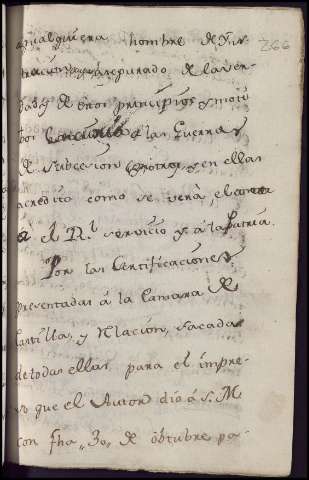 qualquiera hombre de
266
reputado de la ver-
dad, y de estos principios y
las Guerras
de Subcesion y en ellas
acredito como se verá, el
á el Rl. servicio y á la Patria.
Por las Certificaciones
presentadas á la Camara de
Castilla, y Relacion, sacada
de todas ellas para el impre-
so que el Autor dió á S. M.
con fha. 30,, de octubre pa-